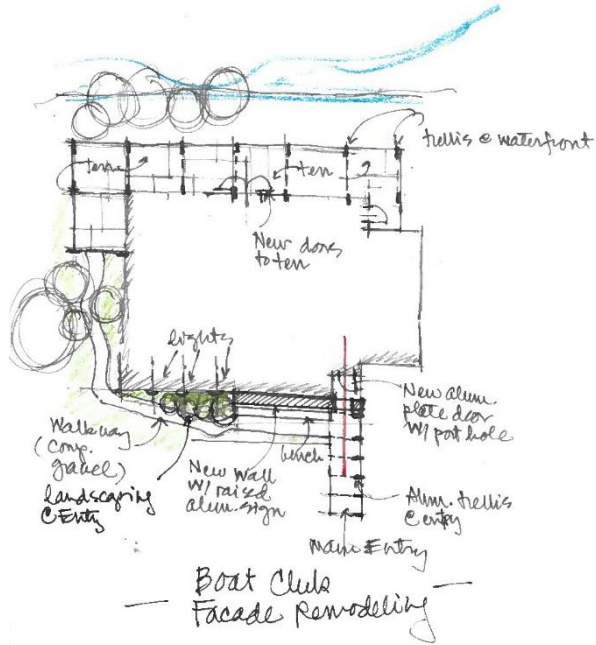 trellis @ waterfront
terr
terr
New doors
to terr
lights
New alum.
plate door
w/ port hole
Walkway
(comp.
gravel)
landscaping
@ Entry
New wall
w/ raised
alum. sign
bench
Alum. trellis
@ entry
Main Entry
Boat Club
Facade Remodeling